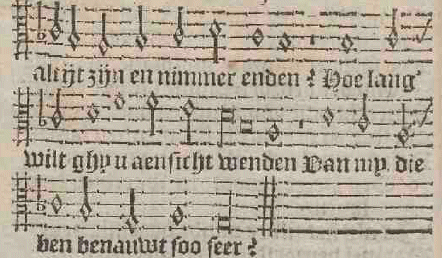 altijt zijn en nimmer enden? Hoe lang'
wilt ghy u aensicht wenden Van my, die
ben benauwt soo seer?